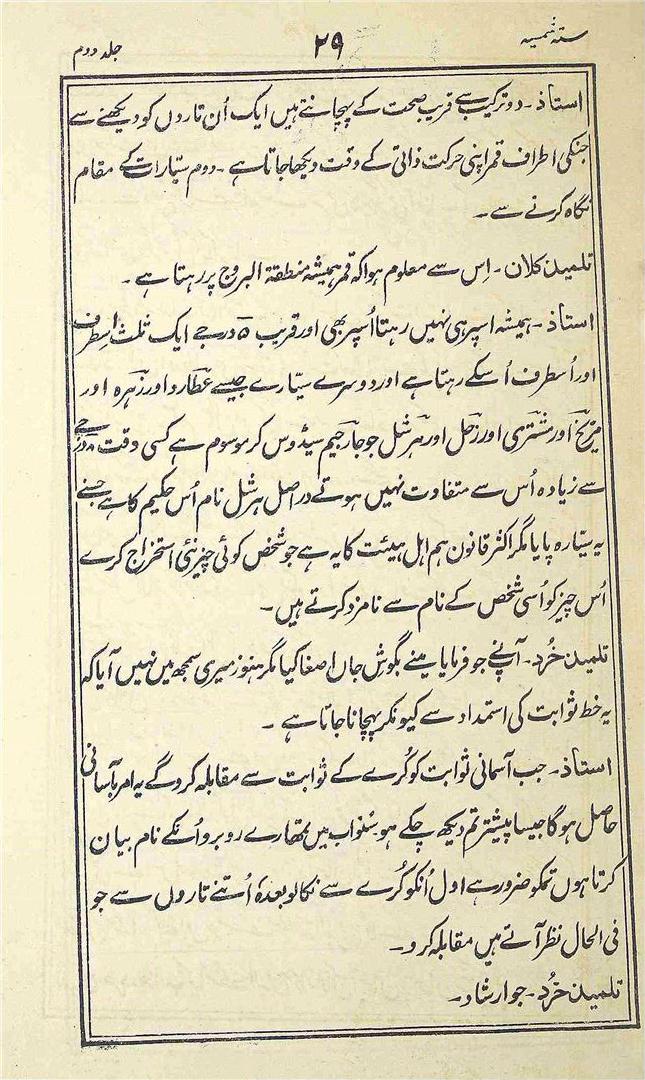 ستہ شمسیہ ۲۹ جلد دوم
استاذ۔ دو ترکیب سے قریب صحت کے پہچانتے ہیں ایک اُن تاروں کو دیکھنے سے
جنکی اطراف قمر اپنی حرکت ذاتی کے وقت دیکھا جاتا ہے۔ دوم سیّارات کے مقام
نگاہ کرنے سے۔
تلمیذ کلان۔ اِس سے معلوم ہوا کہ قمر ہمیشہ منطقۃ البروج پر رہتا ہے۔
استاذ۔ ہمیشہ اسپر ہی نہیں رہتا اُسپر بھی اور قریب ۵ درجے ایک ثلث اِسطرف
اور اُسطرف اُسکے رہتا ہے اور دوسرے سیّارے جیسے عطارد اور زہرہ اور
مریخ اور مشتری اور زحل اور ہرشل جو جارجیم سیڈوس کر موسوم ہے کسی وقت ۸ درجے
سے زیادہ اُس سے متفاوت نہیں ہوتے دراصل ہرشل نام اُس حکیم کا ہے جسنے
یہ سیّارہ پایا مگر اکثر قانون ہم اہل ہیئت کا یہ ہے جو شخص کوئی چیز نئی استخراج کرے
اُس چیز کو اُسی شخص کے نام سے نامزد کرتے ہیں۔
تلمیذ خُرد۔ آپنے جو فرمایا مینے بگوش جاں اصغا کیا مگر ہنوز میری سمجھ میں نہیں آیا کہ
یہ خط ثوابت کی استمداد سے کیونکر پہچانا جاتا ہے۔
استاذ۔ جب آسمانی ثوابت کو کُرے کے ثوابت سے مقابلہ کروگے یہ امر بآسانی
حاصل ہوگا جیسا پیشتر تم دیکھ چکے ہو سنو اب میں تمھارے روبرو اُنکے نام بیان
کرتا ہوں تمکو ضرور ہے اول اُنکو کُرے سے نکالو بعدہٗ اُتنے تاروں سے جو
فی الحال نظر آتے ہیں مقابلہ کرو۔
تلمیذ خُرد۔ جو ارشاد۔